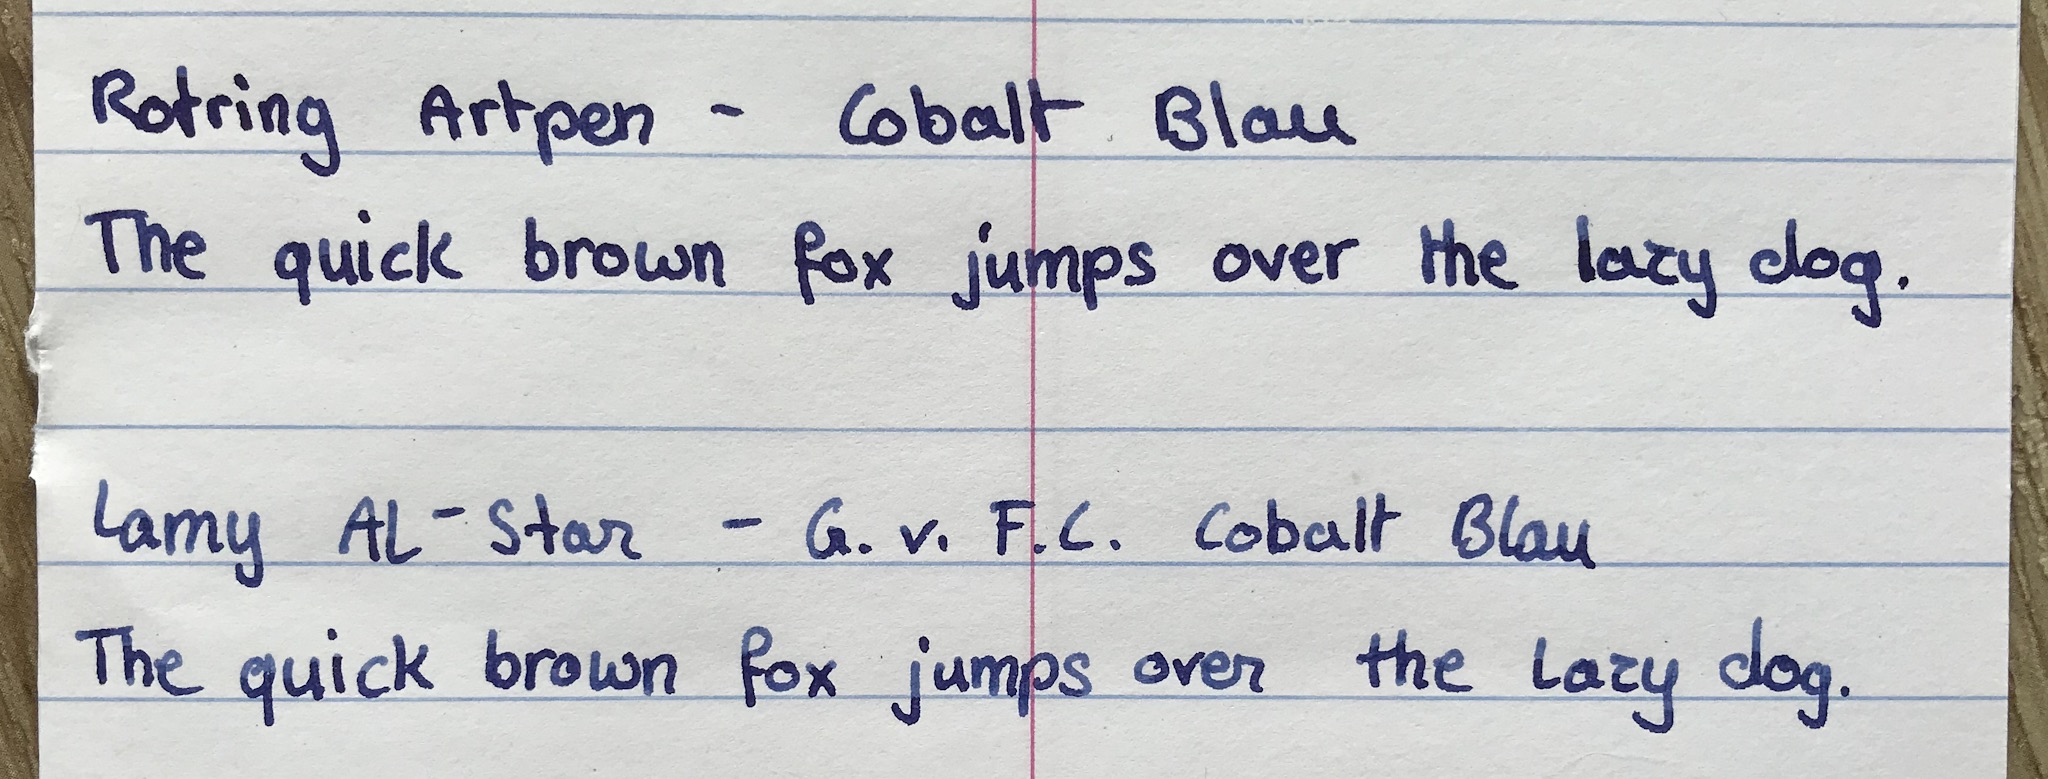 Rotring Artpen - Cobalt Blau
The quick brown fox jumps over the lazy dog.
Lamy AL-Star - G. v. F.C. Cobalt Blau
The quick brown fox jumps over the lazy dog.